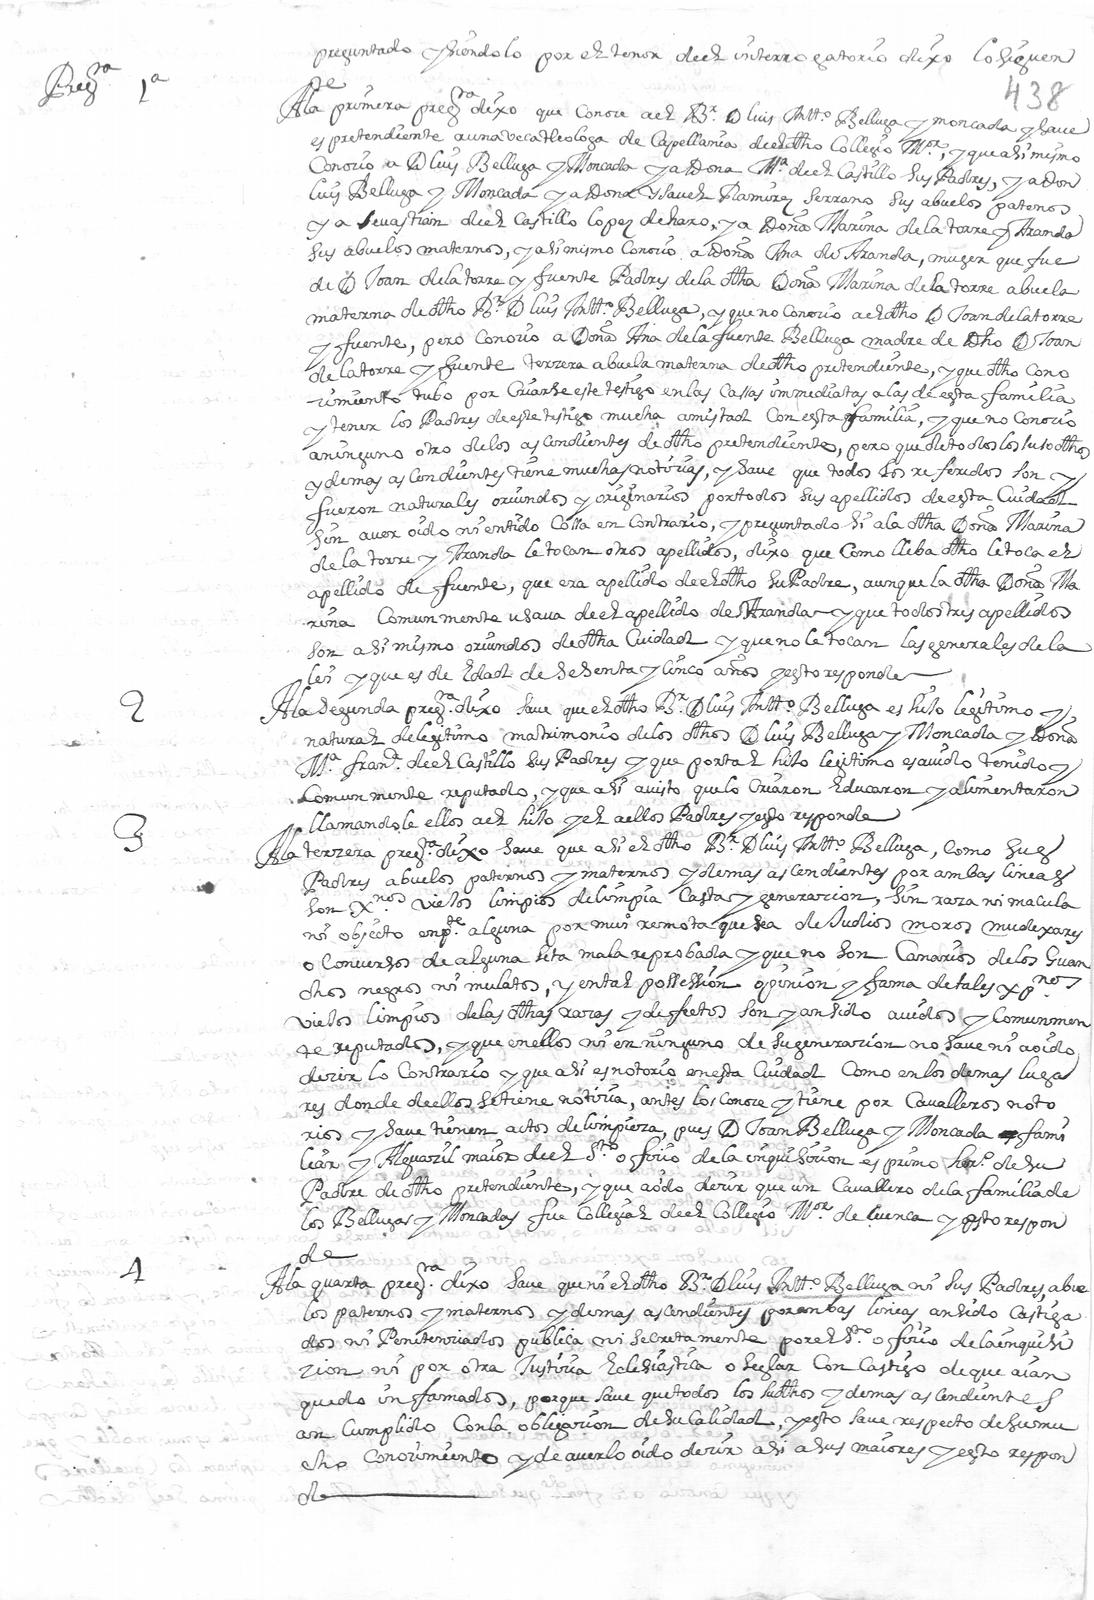 preguntado y siendolo por el tenor de el interrogatorio dixo lo siguien
te
438
Preg.ta 1a
A la primera preg.ta dixo que Conoce a el Br. D Luis Antt.o Belluga y moncada y save
es pretendiente a una veca theologa de Capellania de el dtho Collegio M.or, y que asi mismo
Conocio a D Luis Belluga y Moncada y a Dona M.a de el Castillo sus Padres, y a Don
Luis Belluga y Moncada y a Dona Ysavel Ramirez Serrano sus abuelos paternos
y a Sevastian de el Castillo Lopez de haro, y a Doña Marina de la torre y Aranda
sus abuelos maternos, y asi mismo Conocio a Doña Ana de Aranda, muger que fue
de D Joan de la torre y fuente Padres de la dtha Doña Marina de la torre abuela
materna de dtho Br. D Luis Antt.o Belluga, y que no Conocio a el dtho D Joan de la torre
y fuente, pero Conocio a Doña Ana de la fuente Belluga madre de Dho D Joan
de la torre y fuente terzera abuela materna de dtho pretendiente, y que dtho Cono
cimiento tubo por Criarse este testigo en las Cassas immediatas a las de esta familia
y tener los Padres de este testigo mucha amistad Con esta familia, y que no Conocio
a ninguno otro de los ascendientes de dtho pretendiente, pero que de todos los susodthos
y demas ascendientes tiene muchas noticias, y save que todos los referidos son y
fueron naturales oriundos y originarios por todos sus apellidos de esta Ciudad
sin aver oido ni entido Cossa en Contrario, y preguntado si a la dtha Doña Marina
de la torre y Aranda le tocan otros apellidos, dixo que Como lleba dtho le toca el
apellido de fuente, que era apellido de el dtho su Padre, aunque la dtha Doña Ma
rina Comunmente usava de el apellido de Aranda y que todos tres apellidos
son asi mismo oriundos de dtha Ciudad y que no le tocan las generales de la
lei y que es de Edad de sesenta y cinco años y esto responde
2 A la segunda preg.ta dixo save que el dtho Br. D Luis Antt.o Belluga es hijo legitimo y
natural de legitimo matrimonio de los dthos D Luis Belluga y Moncada y Doña
M.a Fran.ca de el Castillo sus Padres y que por tal hijo legitimo es avido tenido y
Comunmente reputado, y que asi a visto que lo Criaron Educaron y alimentaron
llamandole ellos a el hijo y el a ellos Padres y esto responde
3 A la terzera preg.ta dixo save que asi el dtho Br. D Luis Antt.o Belluga, Como sus
Padres abuelos paternos y maternos y demas ascendientes por ambas lineas
son Xnos viejos limpios de limpia Casta y generacion, sin raza ni macula
ni objecto en p.te alguna por mui remota que sea de Judios moros mudexares
o Conversos de alguna seta mala reprobada y que no son Canarios de los Guan
ches negros ni mulatos, y en tal possession opinion y fama de tales xpnos
viejos limpios de las dthas razas y defectos son y an sido avidos y Comunmen
te reputados, y que en ellos ni en ninguno de su generacion no save ni a oido
decir lo Contrario y que asi es notorio en esta Ciudad Como en los demas luga
res donde de ellos se tiene noticia, antes los Conoce y tiene por Cavalleros noto
rios y save tienen actos de limpieza, pues D Joan Belluga y Moncada fami
liar y Alguazil maior de el S.to oficio de la inquisicion es primo her.o de su
Padre de dtho pretendiente, y que a oido decir que un Cavallero de la familia de
los Bellugas y Moncadas fue Collegial de el Collegio M.or de Cuenca y esto respon
de
4 A la quarta preg.ta dixo save que ni el dtho Br. D Luis Antt.o Belluga ni sus Padres, abue
los paternos y maternos y demas ascendientes por anbas lineas an sido Castiga
dos ni Penitenciados publica ni secretamente por el S.to oficio de la inquisi
cion ni por otra Justicia Eclesiastica o seglar Con Castigo de que aian
quedo infamados, porque save que todos los susodthos y demas ascendientes
an Cumplido Con la obligacion de su Calidad, y esto save respecto de su mu
cho Conocimiento y de averlo oido decir asi a sus maiores y esto respon
de